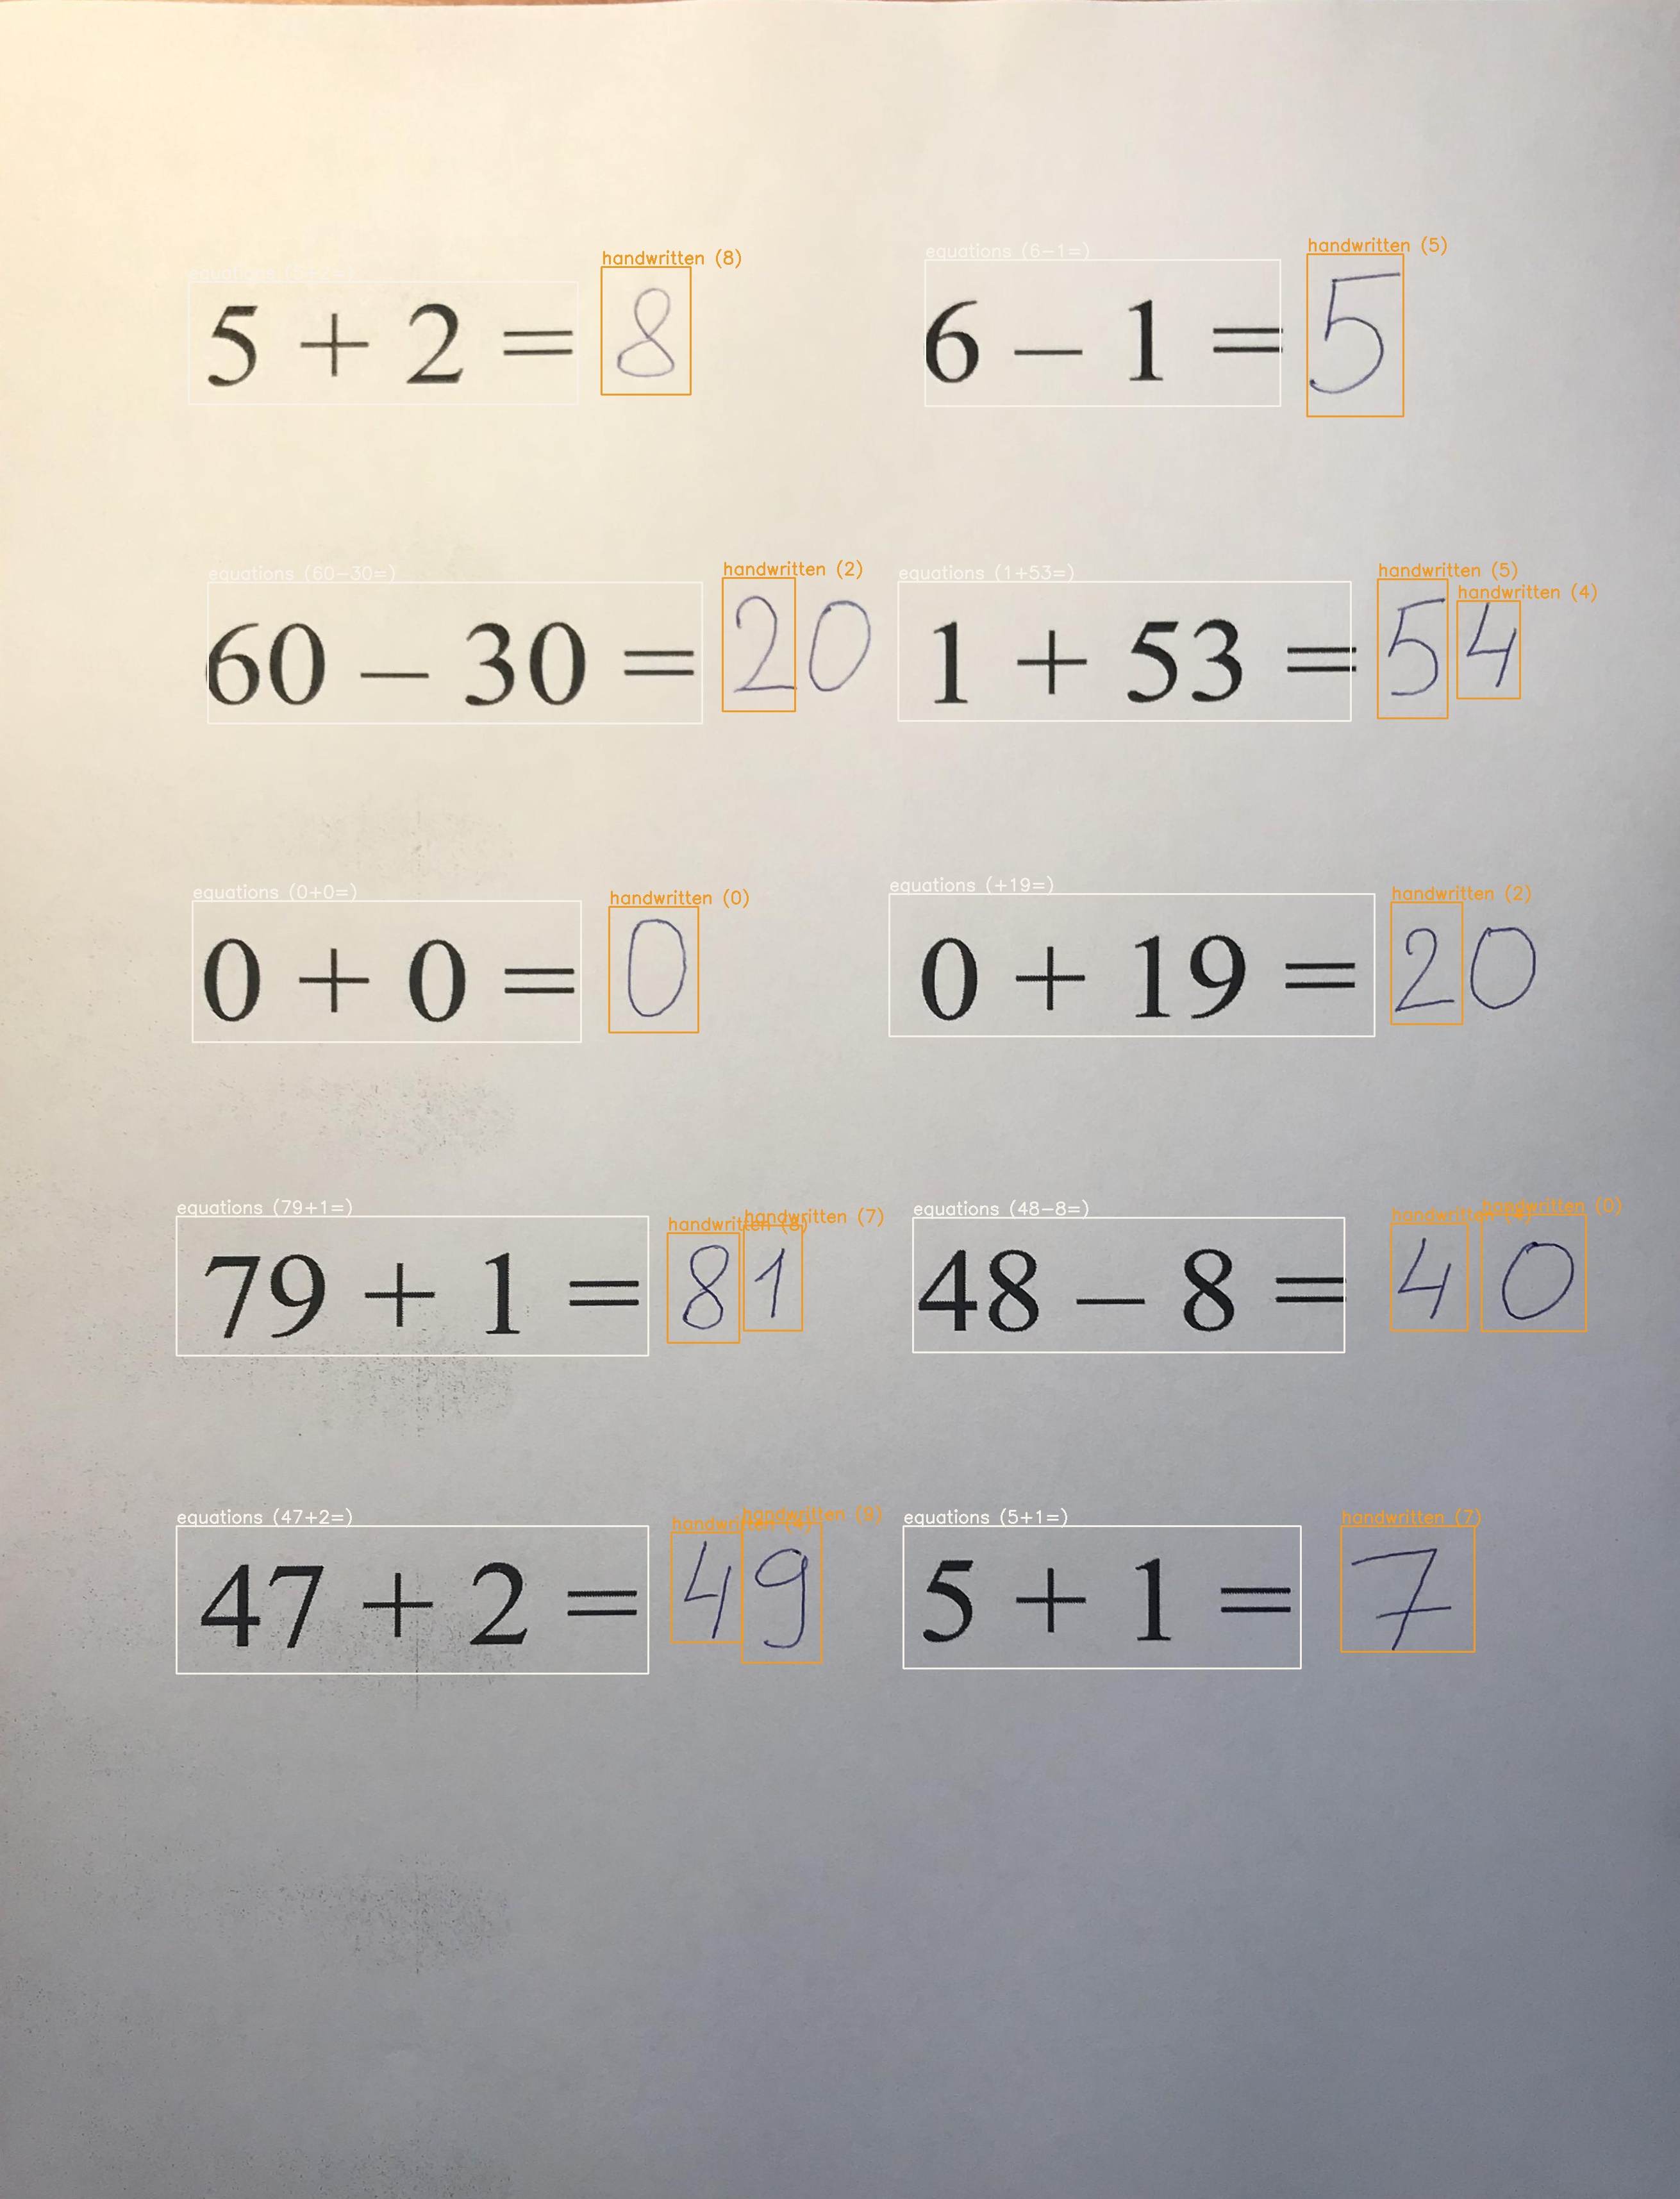 equations (5+2=) handwritten (8) equations (6-1=) handwritten (5)
5 + 2 = 8 6 – 1 = 5
equations (60-30=) handwritten (2) equations (1+53=) handwritten (5) handwritten (4)
60 – 30 = 20 1 + 53 = 54
equations (0+0=) handwritten (0) equations (+19=) handwritten (2)
0 + 0 = 0 0 + 19 = 20
equations (79+1=) handwritten (8) handwritten (7) equations (48-8=) handwritten (4) handwritten (0)
79 + 1 = 81 48 – 8 = 40
equations (47+2=) handwritten (4) handwritten (9) equations (5+1=) handwritten (7)
47 + 2 = 49 5 + 1 = 7